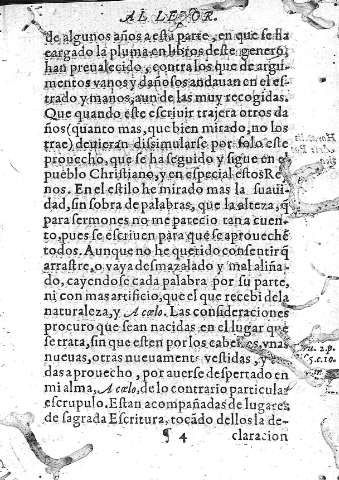 AL LETOR.
de algunos años a esta parte, en que se ha
cargado la pluma en libros deste genero,
han preualecido, contra los que de argu-
mentos vanos y dañosos andauan en el es-
trado y manos, aun de las muy recogidas.
Que quando este escriuir trajera otros da
ños (quanto mas, que bien mirado, no los
trae) deuieran dissimularse por solo este
prouecho, que se ha seguido y sigue en el
pueblo Christiano, y en especial estos Re
nos. En el estilo he mirado mas la suaui-
dad, sin sobra de palabras, que la alteza, q̃
para sermones no me parecio tan a cuen-
to, pues se escriuen para que se aprouechẽ
todos. Aunque no he querido consentir q̃
arrastre, o vaya desmazalado y mal aliña-
do, cayendose cada palabra por su parte,
ni con mas artificio, que el que recebi de la
naturaleza, y A cælo. Las consideraciones
procuro que sean nacidas en el lugar que
se trata, sin que esten por los cabellos, vnas
nueuas, otras nueuamente vestidas, y
das a prouecho, por auerse despertado en
mi alma, A cælo, de lo contrario particular
escrupulo. Estan acompañadas de lugares
de sagrada Escritura, tocãdo dellos la de-
¶ 4 claracion